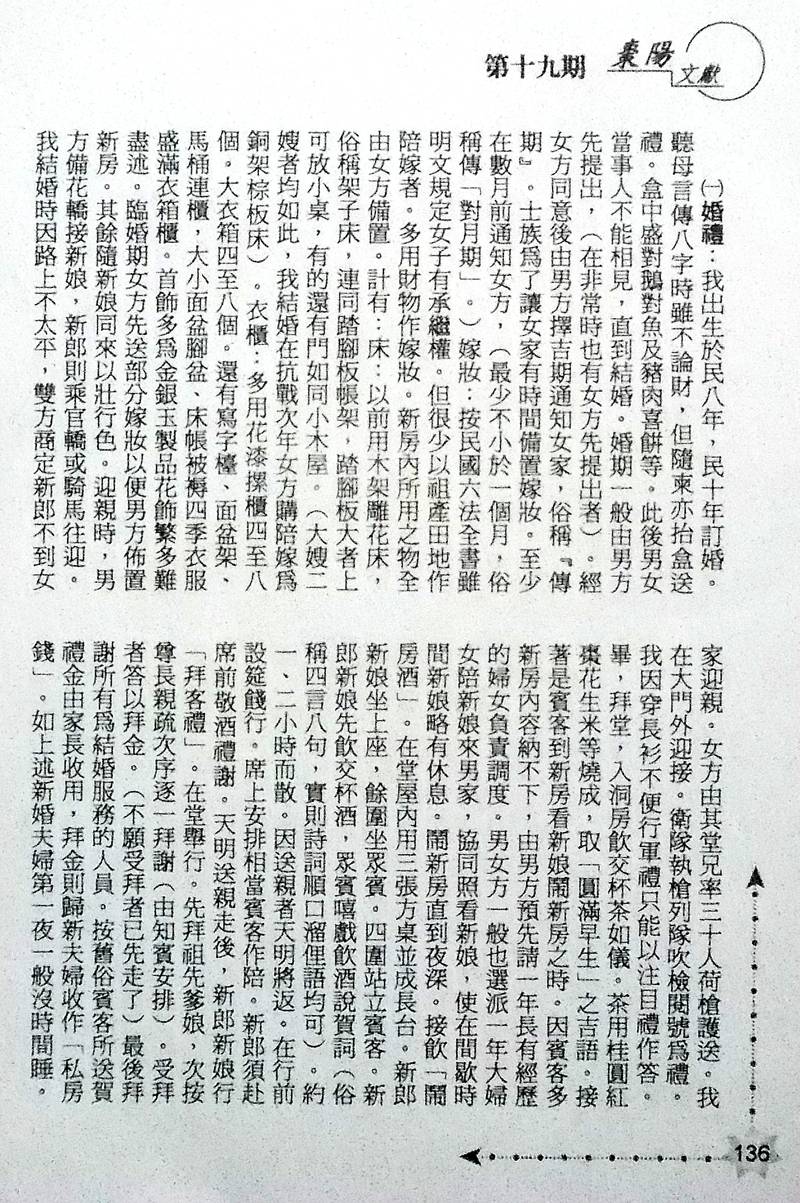 第十九期
棗陽
文獻
㈠婚禮：我出生於民八年，民十年訂婚。
聽母言傳八字時雖不論財，但隨柬亦抬盒送
禮。盒中盛對鵝對魚及豬肉喜餅等。此後男女
當事人不能相見，直到結婚。婚期一般由男方
先提出，（在非常時也有女方先提出者）。經
女方同意後由男方擇吉期通知女家，俗稱『傳
期』。士族爲了讓女家有時間備置嫁妝。至少
在數月前通知女方，（最少不小於一個月，俗
稱傳「對月期」。）嫁妝：按民國六法全書雖
明文規定女子有承繼權。但很少以祖產田地作
陪嫁者。多用財物作嫁妝。新房內所用之物全
由女方備置。計有：床：以前用木架雕花床，
俗稱架子床，連同踏腳板帳架，踏腳板大者上
可放小桌，有的還有門如同小木屋。（大嫂二
嫂者均如此，我結婚在抗戰次年女方購陪嫁爲
銅架棕板床）。衣櫃：多用花漆摞櫃四至八
個。大衣箱四至八個。還有寫字檯、面盆架、
馬桶連櫃，大小面盆腳盆、床帳被褥四季衣服
盛滿衣箱櫃。首飾多爲金銀玉製品花飾繁多難
盡述。臨婚期女方先送部分嫁妝以便男方佈置
新房。其餘隨新娘同來以壯行色。迎親時，男
方備花轎接新娘，新郎則乘官轎或騎馬往迎。
我結婚時因路上不太平，雙方商定新郎不到女
家迎親。女方由其堂兄率三十人荷槍護送。我
在大門外迎接。衛隊執槍列隊吹檢閱號爲禮。
我因穿長衫不便行軍禮只能以注目禮作答。
畢，拜堂，入洞房飲交杯茶如儀。茶用桂圓紅
棗花生米等燒成，取「圓滿早生」之吉語。接
著是賓客到新房看新娘鬧新房之時。因賓客多
新房內容納不下，由男方預先請一年長有經歷
的婦女負責調度。男女方一般也選派一年大婦
女陪新娘來男家，協同照看新娘，使在間歇時
間新娘略有休息。鬧新房直到夜深。接飲「鬧
房酒」。在堂屋內用三張方桌並成長台。新郎
新娘坐上座，餘圍坐眾賓。四圍站立賓客。新
郎新娘先飲交杯酒，眾賓嘻戲飲酒說賀詞（俗
稱四言八句，實則詩詞順口溜俚語均可）。約
一、二小時而散。因送親者天明將返。在行前
設筵餞行。席上安排相當賓客作陪。新郎須赴
席前敬酒禮謝。天明送親走後，新郎新娘行
「拜客禮」。在堂舉行。先拜祖先爹娘，次按
尊長親疏次序逐一拜謝（由知賓安排）。受拜
者答以拜金。（不願受拜者已先走了）最後拜
謝所有爲結婚服務的人員。按舊俗賓客所送賀
禮金由家長收用，拜金則歸新夫婦收作「私房
錢」。如上述新婚夫婦第一夜一般沒時間睡。
136